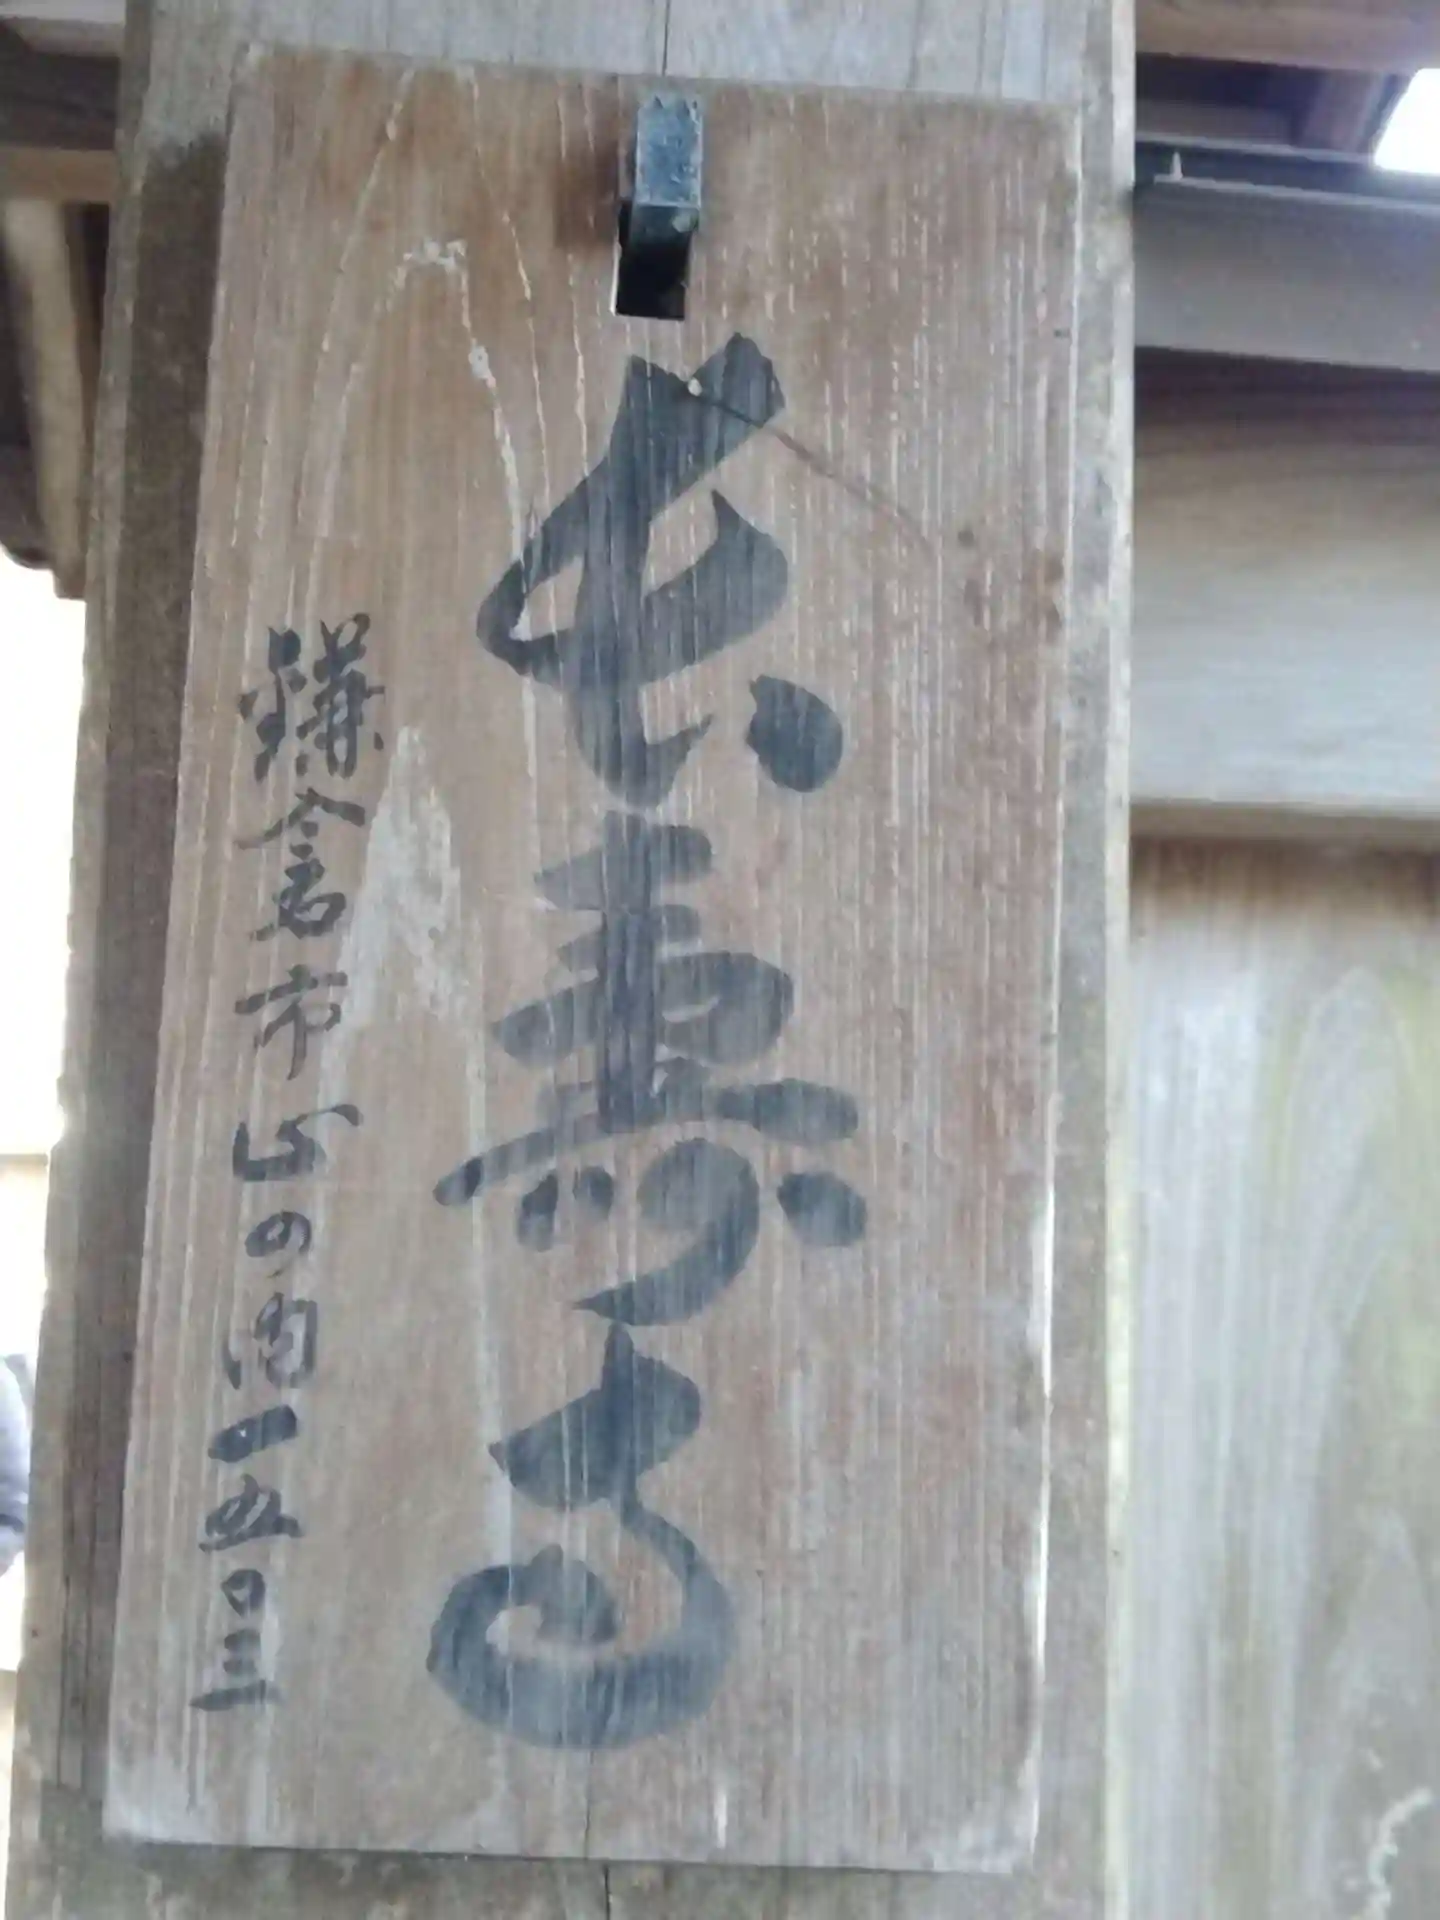 長寿寺
鎌倉市山の内一五〇三